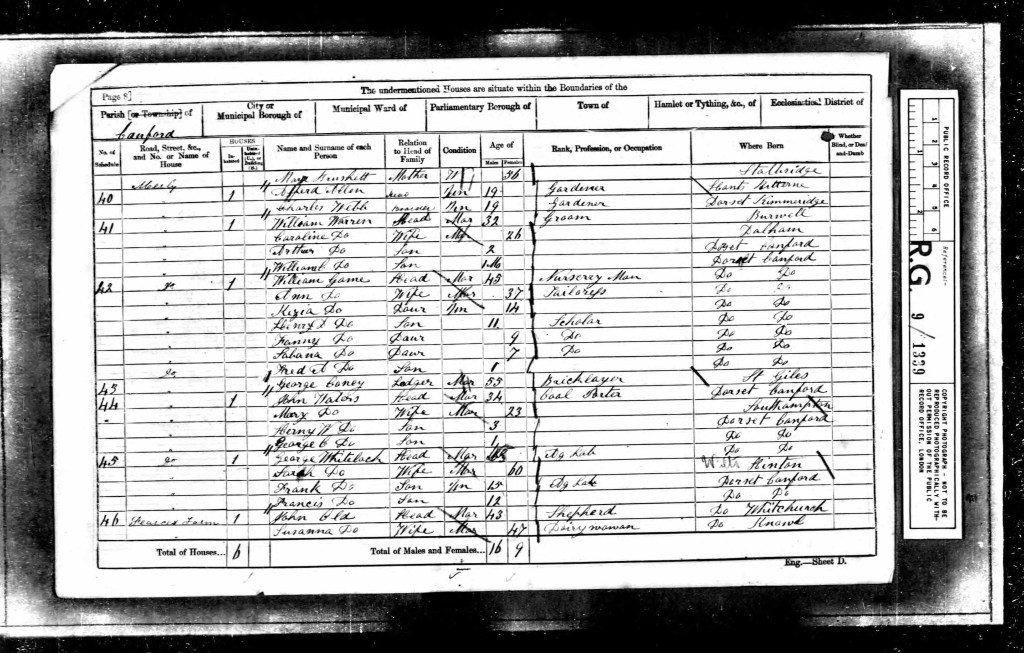 The undermentioned Houses are situate within the Boundaries of the
Page 8]
Parish [or Township] of
City or Municipal Borough of
Municipal Ward of
Parliamentary Borough of
Town of
Hamlet or Tything, &c., of
Ecclesiastical District of
Canford
No. of Schedule
Road, Street, &c., and No. or Name of House
HOUSES
Inhabited
Uninhabited (U.), or Building (B.)
Name and Surname of each Person
Relation to Head of Family
Condition
Age of
Males
Females
Rank, Profession, or Occupation
Where Born
Whether Blind, or Deaf-and-Dumb
Mary Mother W 36 Stalbridge
40 Merly 1 Alfred Allen Head Un 19 Gardener Hants Bitterne
Charles Webb Un 19 Gardener Dorset Kimmeridge
41 1 William Warren Head Mar 32 Groom Burwell
Caroline Do Wife Mar 26 Dalham
Arthur Do Son 2 Dorset Canford
William C Do Son 1 M Dorset Canford
42 Do 1 William Game Head Mar 45 Nurserey Man Do Do
Ann Do Wife Mar 37 Tailoress Do Do
Kezia Do Daur Un 14 Do Do
Henry D Do Son 11 Scholar Do Do
Fanny Do Daur 9 Do Do Do
Sabana Do Daur 7 Do Do Do
Fred A Do Son 1 Do Do
43 Do George Coney Lodger Mar 55 Bricklayer St Giles
44 1 John Waters Head Mar 34 Coal Porter Dorset Canford
Mary Do Wife Mar 23 Southampton
Henry W Do Son 3 Dorset Canford
George C Do Son 1 Do Do
45 Do 1 George Whitelock Head Mar Ag Lab Do Do
Sarah Do Wife Mar 60 Wilts Hinton
Frank Do Son Un 15 Ag Lab Dorset Canford
Francis Do Son 12 Do Do
46 Farm 1 John Old Head Mar 43 Shepherd Do Whitchurch
Susanna Do Wife Mar 47 Dairywoman Do Knowl
Total of Houses... 6
Total of Males and Females... 16 9
Eng.—Sheet D.
PUBLIC RECORD OFFICE
1 2 3 4 5 6
Reference:-
R.G. 9/1339
COPYRIGHT PHOTOGRAPH - NOT TO BE REPRODUCED PHOTOGRAPHICALLY WITHOUT PERMISSION OF THE PUBLIC RECORD OFFICE, LONDON